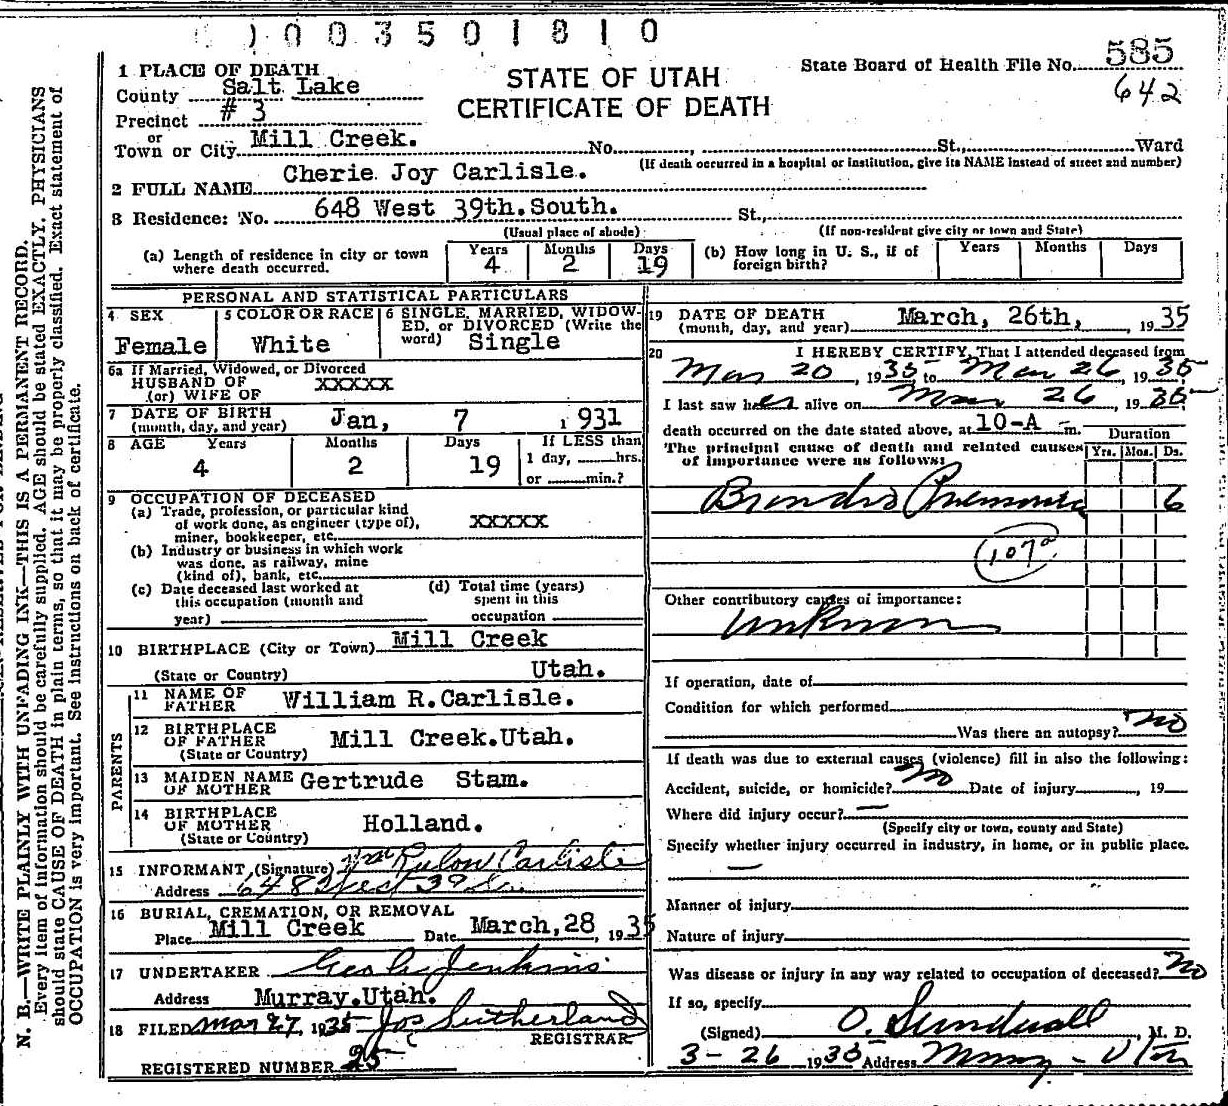 0 0 3 5 0 1 8 1 0
State Board of Health File No. 585
642
STATE OF UTAH
CERTIFICATE OF DEATH
1 PLACE OF DEATH
County Salt Lake
Precinct # 3
or
Town or City Mill Creek. No. , St., Ward
(If death occurred in a hospital or institution, give its NAME instead of street and number)
2 FULL NAME Cherie Joy Carlisle.
3 Residence: No. 648 West 39th. South. St.,
(Usual place of abode) (If non-resident give city or town and State)
(a) Length of residence in city or town where death occurred. Years 4 Months 2 Days 19
(b) How long in U. S., if of foreign birth? Years Months Days
PERSONAL AND STATISTICAL PARTICULARS
4 SEX Female
5 COLOR OR RACE White
6 SINGLE, MARRIED, WIDOWED, or DIVORCED (Write the word) Single
6a If Married, Widowed, or Divorced
HUSBAND OF
(or) WIFE OF XXXXX
7 DATE OF BIRTH
(month, day, and year) Jan, 7 1931
8 AGE Years 4 Months 2 Days 19
If LESS than
1 day, hrs.
or min.?
9 OCCUPATION OF DECEASED
(a) Trade, profession, or particular kind
of work done, as engineer (type of),
miner, bookkeeper, etc. XXXXX
(b) Industry or business in which work
was done, as railway, mine
(kind of), bank, etc.
(c) Date deceased last worked at
this occupation (month and
year)
(d) Total time (years)
spent in this
occupation
10 BIRTHPLACE (City or Town) Mill Creek
(State or Country) Utah.
PARENTS
11 NAME OF FATHER William R. Carlisle.
12 BIRTHPLACE OF FATHER (State or Country) Mill Creek. Utah.
13 MAIDEN NAME OF MOTHER Gertrude Stam.
14 BIRTHPLACE OF MOTHER (State or Country) Holland.
15 INFORMANT (Signature) Wm Rulon Carlisle
Address 648 West 39 So.
16 BURIAL, CREMATION, OR REMOVAL
Place Mill Creek Date March, 28, 1935
17 UNDERTAKER Jenkins
Address Murray. Utah.
18 FILED Mar 27, 1935 Jos Sutherland
REGISTRAR
REGISTERED NUMBER 25
19 DATE OF DEATH
(month, day, and year) March, 26th, , 1935
20 I HEREBY CERTIFY, That I attended deceased from
Mar 20, 1935 to Mar 26, 1935
I last saw her alive on Mar 26, 1935
death occurred on the date stated above, at 10-A m.
The principal cause of death and related causes
of importance were as follows:
Duration
Yrs. Mos. Ds.
Broncho Pneumonia 6
107a
Other contributory causes of importance:
Unknown
If operation, date of
Condition for which performed
Was there an autopsy? no
If death was due to external causes (violence) fill in also the following:
Accident, suicide, or homicide? no Date of injury , 19
Where did injury occur? —
(Specify city or town, county and State)
Specify whether injury occurred in industry, in home, or in public place.
—
Manner of injury
Nature of injury
Was disease or injury in any way related to occupation of deceased? no
If so, specify
(Signed) O. Sundwall, M. D.
3-26 1935 Address Murray - Utah
N. B.—WRITE PLAINLY WITH UNFADING INK—THIS IS A PERMANENT RECORD.
Every item of information should be carefully supplied. AGE should be stated EXACTLY. PHYSICIANS
should state CAUSE OF DEATH in plain terms, so that it may be properly classified. Exact statement of
OCCUPATION is very important. See instructions on back of certificate.